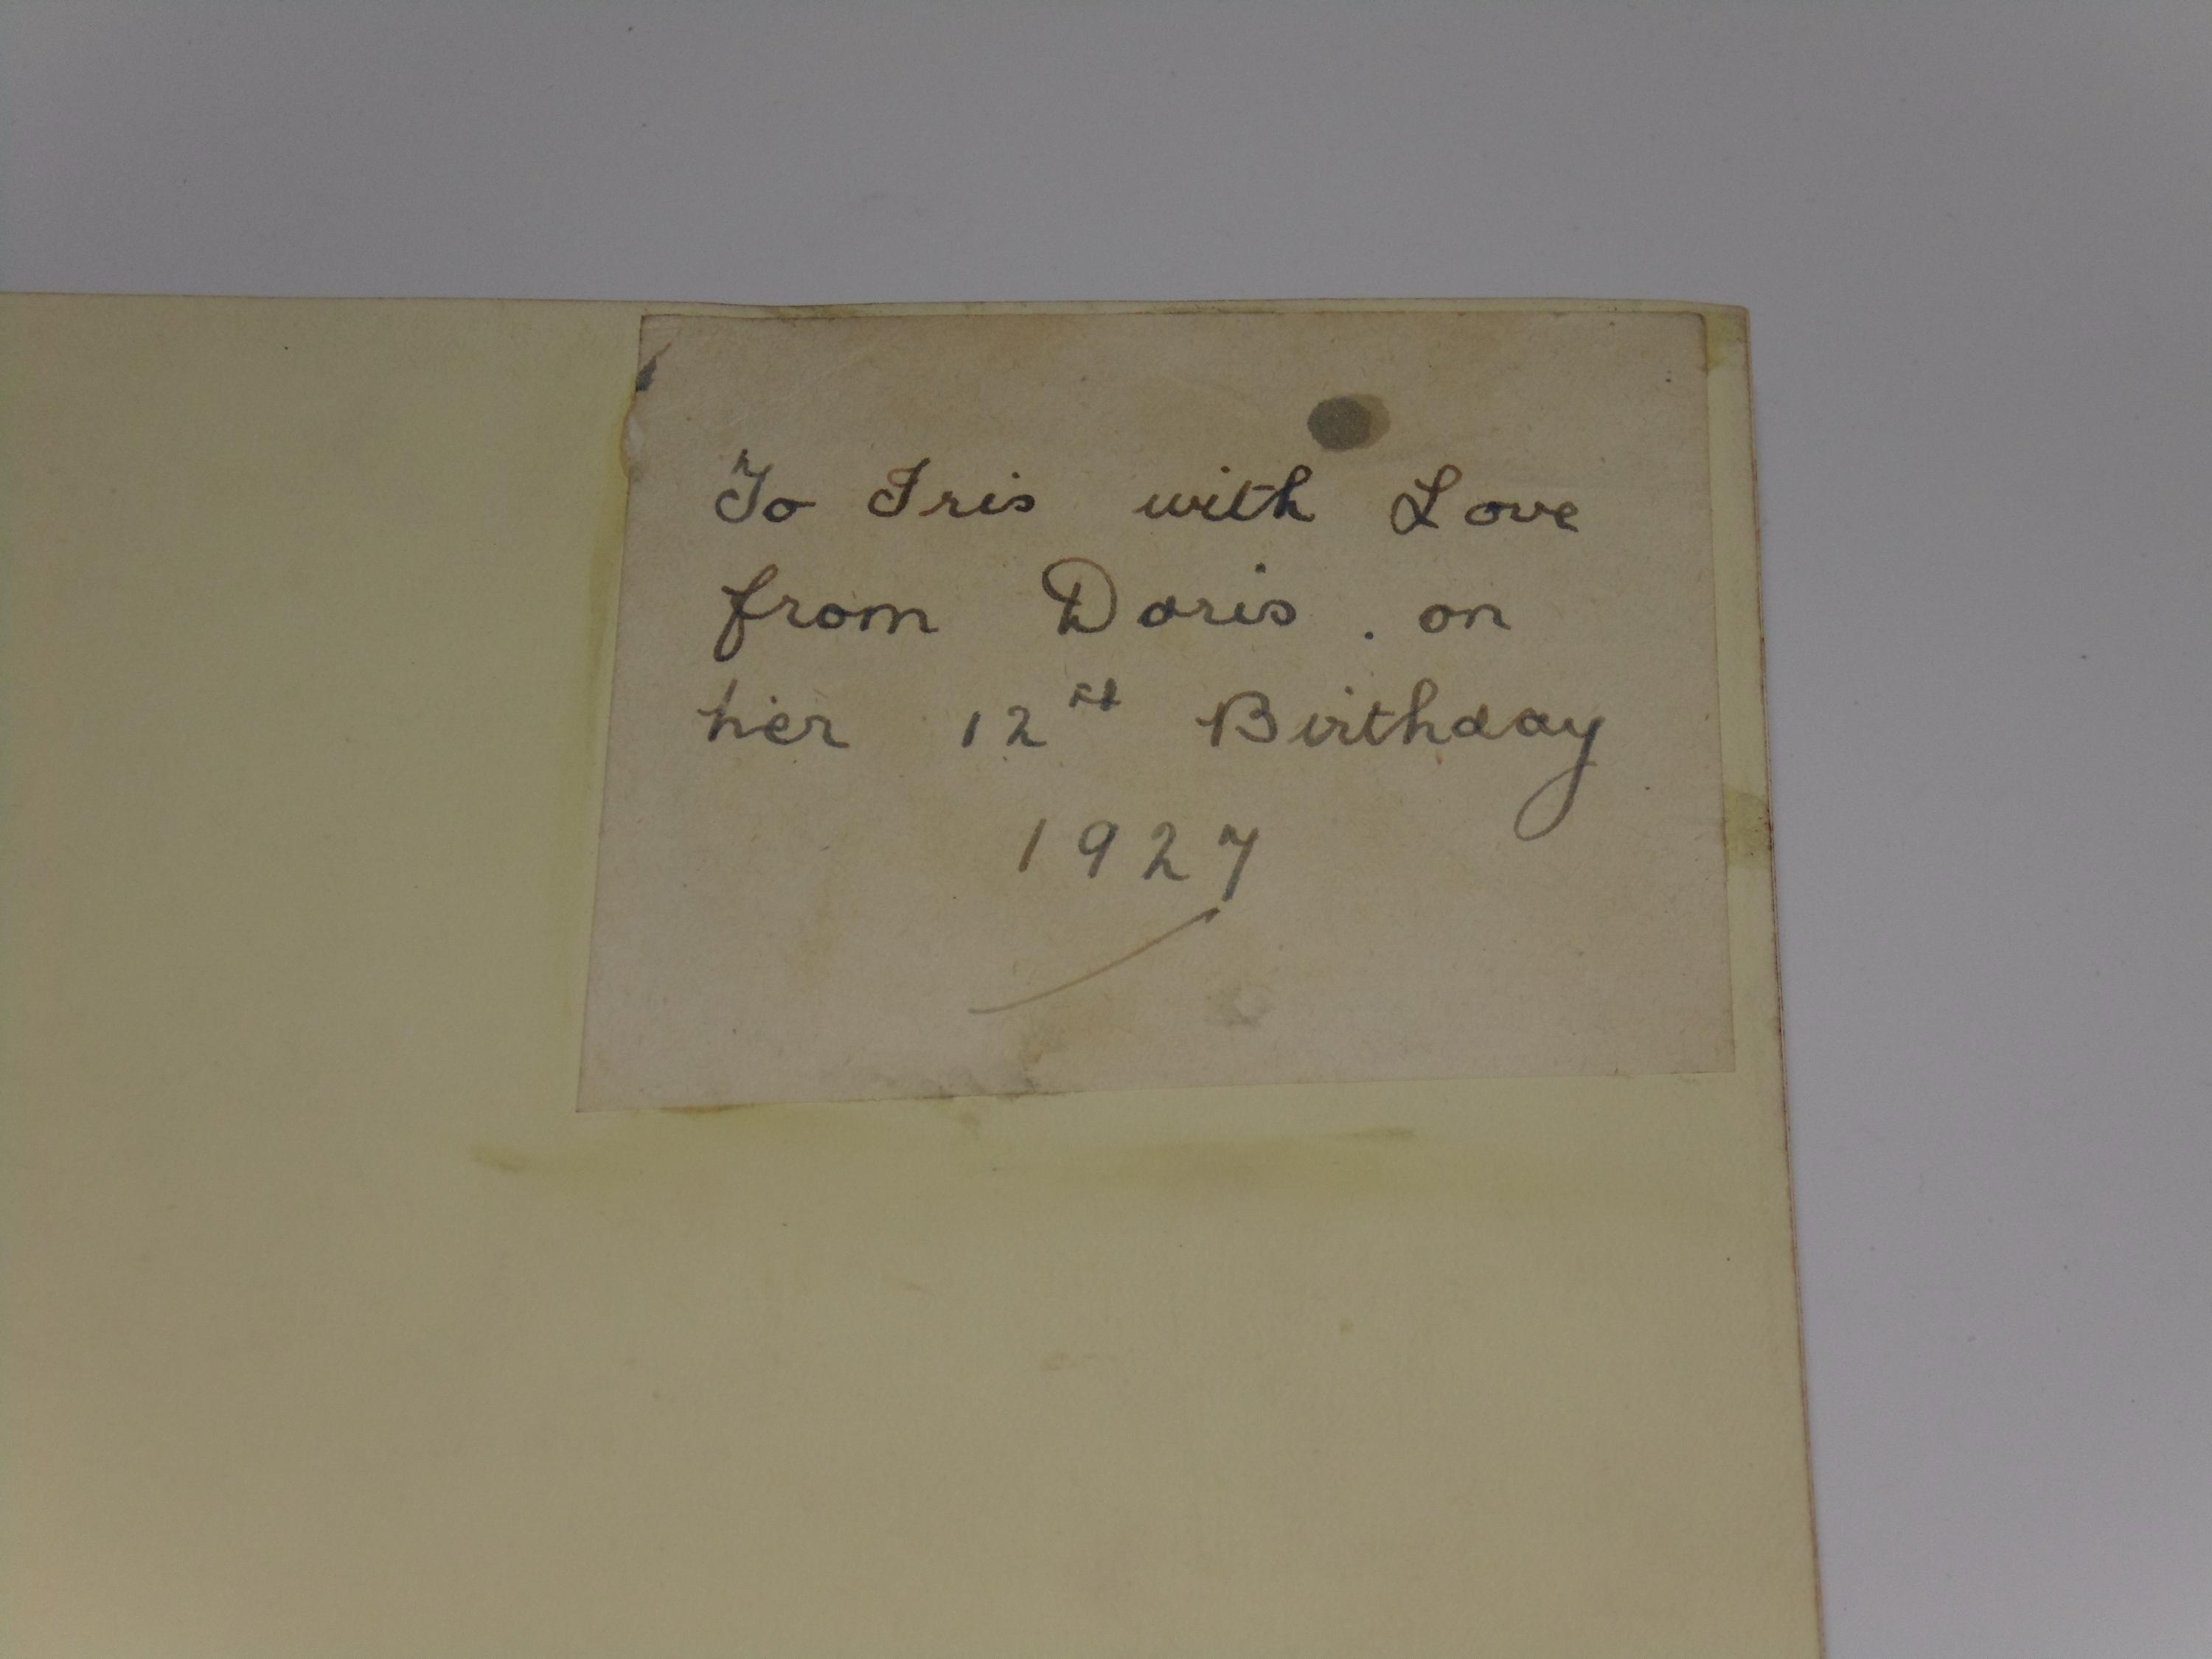 To Iris with Love
from Doris. on
her 12th Birthday
1927